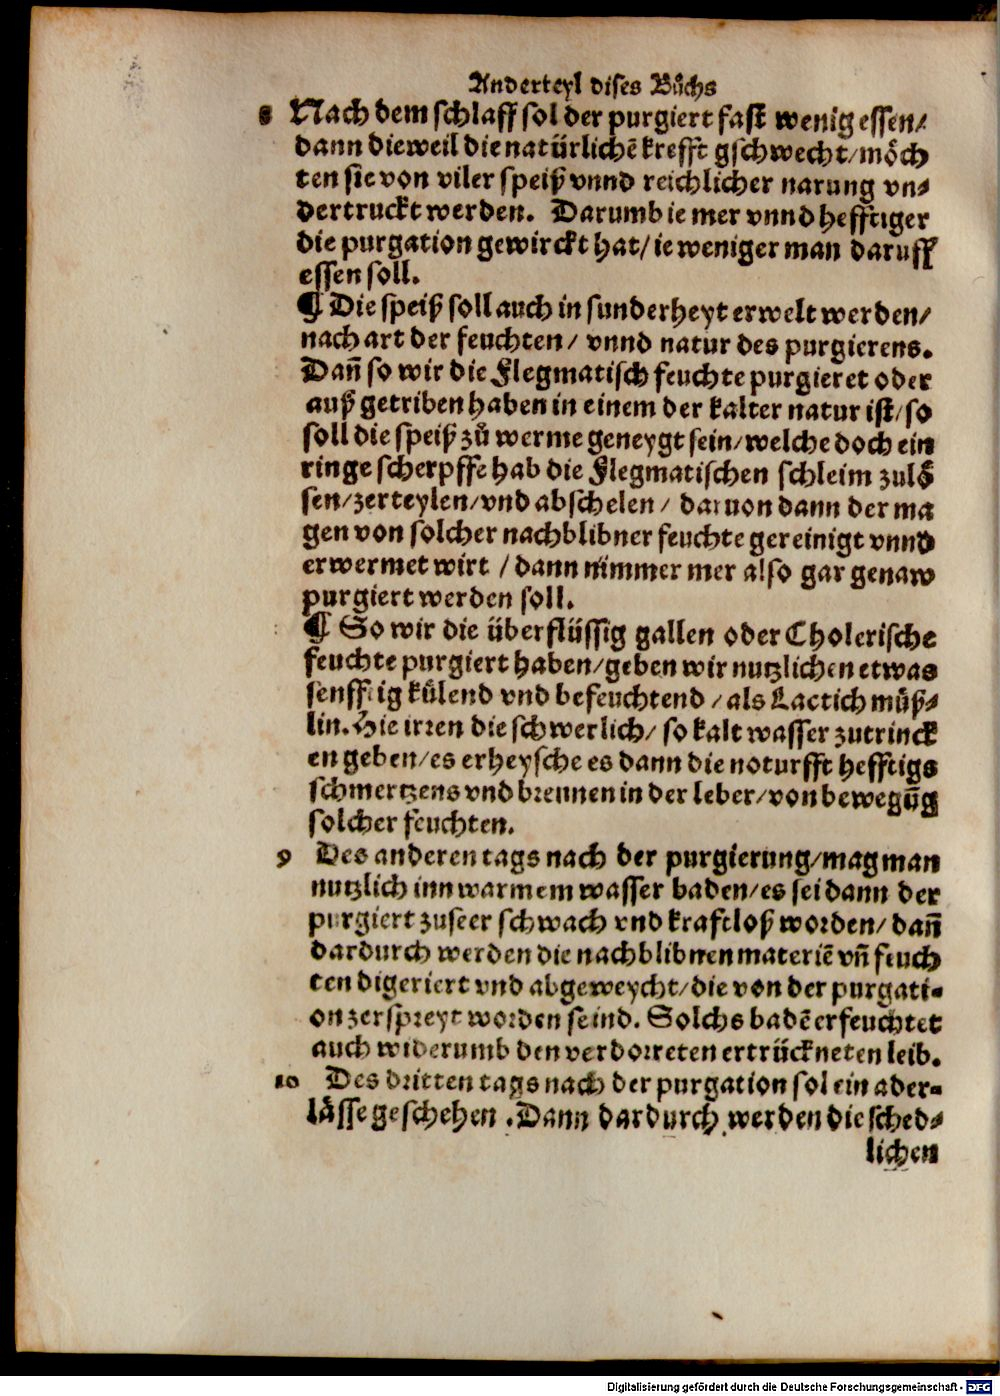 Anderteyl dises Bůchs
8 Nach dem schlaff sol der purgiert fast wenig essen/
dann dieweil die natürlichẽ krefft gschwecht/möch
ten sie von viler speiß vnnd reichlicher narung vn⸗
dertruckt werden. Darumb ie mer vnnd hefftiger
die purgation gewirckt hat/ie weniger man daruff
essen soll.
¶ Die speiß soll auch in sunderheyt erwelt werden/
nach art der feuchten/ vnnd natur des purgierens.
Dañ so wir die Flegmatisch feuchte purgieret oder
auß getriben haben in einem der kalter natur ist/so
soll die speiß zů werme geneygt sein/welche doch ein
ringe scherpffe hab die Flegmatischen schleim zulö
sen/zerteylen/vnd abschelen/ daruon dann der ma
gen von solcher nachblibner feuchte gereinigt vnnd
erwermet wirt /dann nimmer mer also gar genaw
purgiert werden soll.
¶ So wir die überflüssig gallen oder Cholerische
feuchte purgiert haben/geben wir nutzlichen etwas
senfftig külend vnd befeuchtend /als Lactich müß⸗
lin. Hie irren die schwerlich/ so kalt wasser zutrinck
en geben/es erheysche es dann die noturfft hefftigs
schmertzens vnd brennen in der leber/von bewegũg
solcher feuchten.
9 Des anderen tags nach der purgierung/mag man
nutzlich inn warmem wasser baden/es sei dann der
purgiert zuseer schwach vnd kraftloß worden/ dañ
dardurch werden die nachblibnen materiẽ vñ feuch
ten digeriert vnd abgeweycht/die von der purgati⸗
on zerspreyt worden seind. Solchs badẽ erfeuchtet
auch widerumb den verdorreten ertrückneten leib.
10 Des dritten tags nach der purgation sol ein ader⸗
lässe geschehen .Dann dardurch werden die sched⸗
lichen
Digitalisierung gefördert durch die Deutsche Forschungsgemeinschaft - DFG